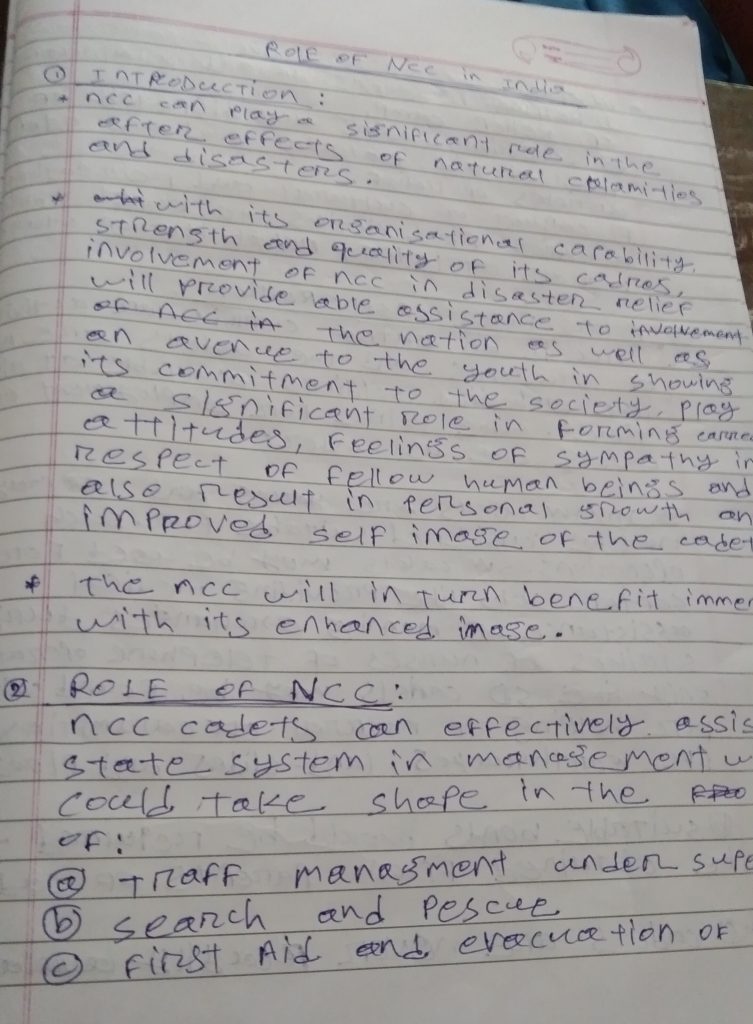 ROLE OF NCC in India
① INTRODUCTION :
* ncc can play a significant role in the
after effects of natural calamities
and disasters.
* with its organisational capability,
strength and quality of its cadres,
involvement of ncc in disaster relief
will provide able assistance to involvement
of ncc in the nation as well as
an avenue to the youth in showing
its commitment to the society, play
a significant role in forming
attitudes, feelings of sympathy in
respect of fellow human beings and
also result in personal growth an
improved self image of the cadet
* the ncc will in turn benefit immen
with its enhanced image.
② ROLE OF NCC:
ncc cadets can effectively assis
state system in management w
could take shape in the
OF:
ⓐ traff managment under supe
ⓑ search and Rescue
ⓒ first Aid and evacuation of